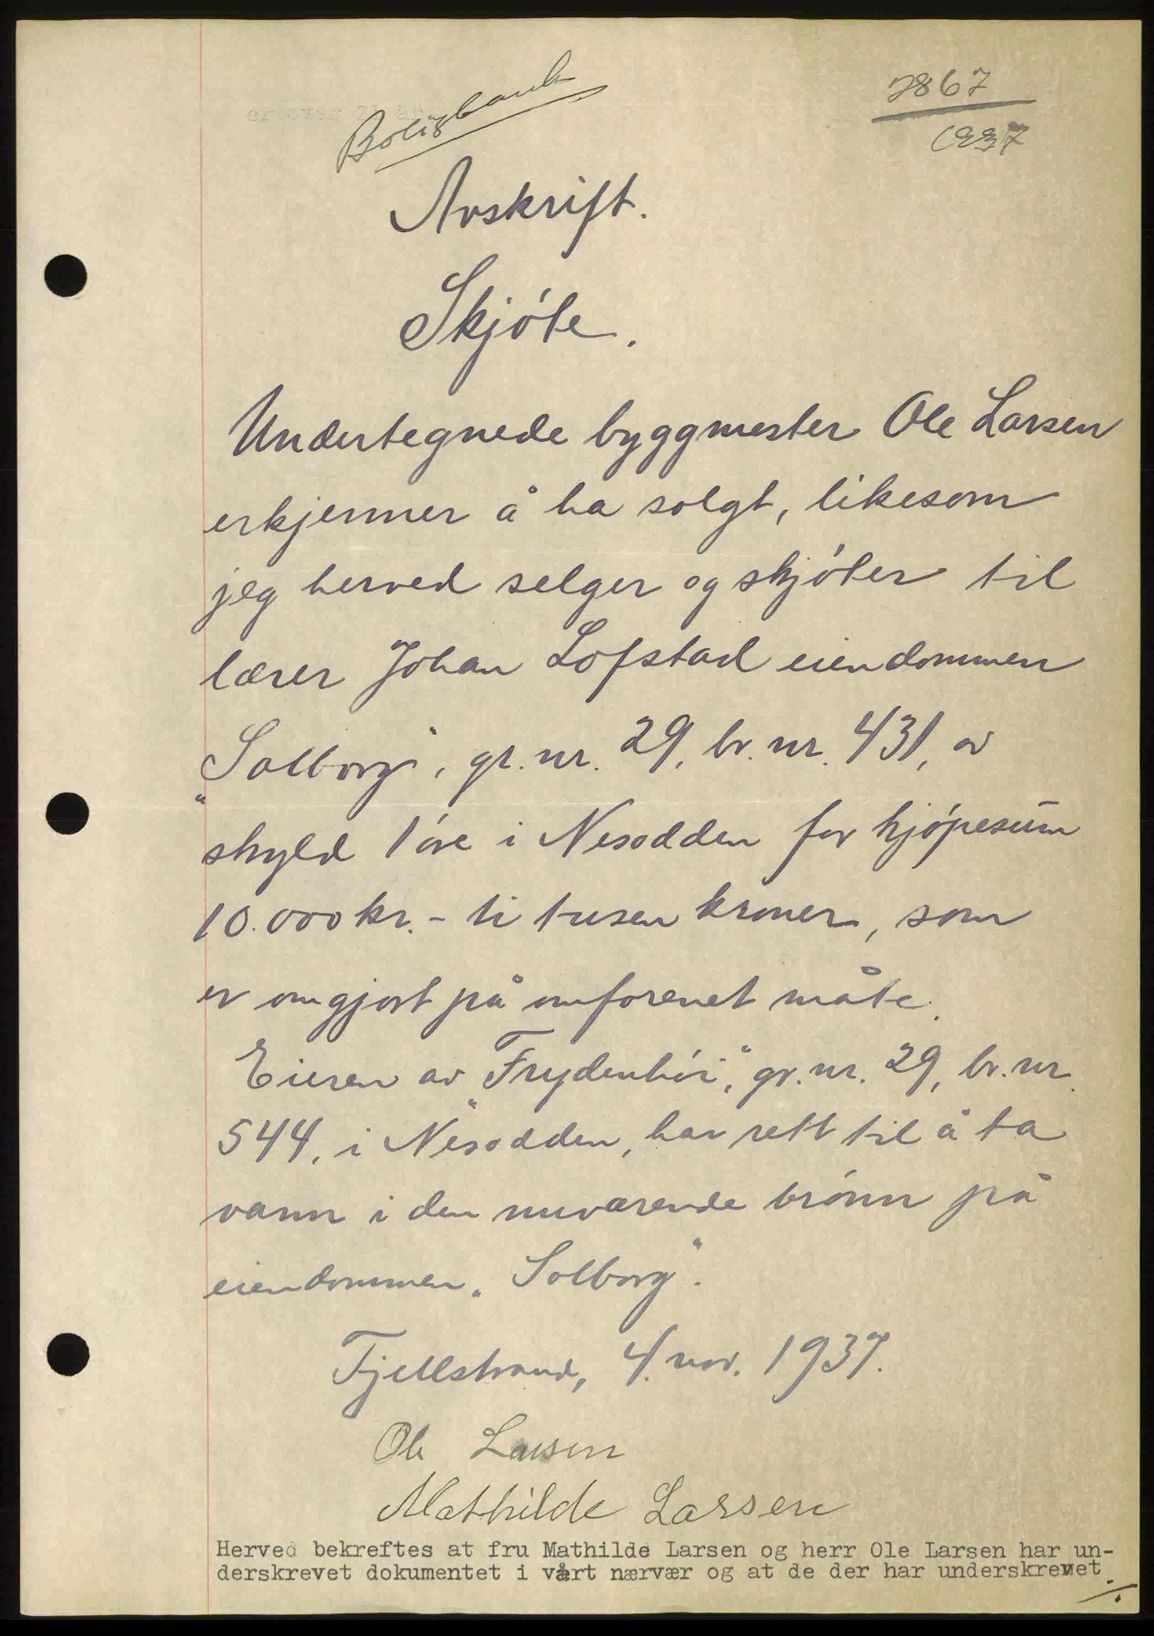 2867
1937
Boligbank
Avskrift.
Skjøte.
Undertegnede byggmester Ole Larsen
erkjenner å ha solgt, likesom
jeg herved selger og skjøter til
lærer Johan Lofstad eiendommen
"Solborg", gr. nr. 29, br. nr. 431, av
skyld 1 øre i Nesodden for kjøpesum
10.000 kr. - ti tusen kroner, som
er omgjort på omforenet måte.
Eieren av "Frydenhøi", gr. nr. 29, br. nr.
544, i Nesodden, har rett til å ta
vann i den nuværende brønn på
eiendommen "Solborg".
Fjellstrand, 4. nov. 1937.
Ole Larsen
Mathilde Larsen
Herved bekreftes at fru Mathilde Larsen og herr Ole Larsen har un-
derskrevet dokumentet i vårt nærvær og at de der har underskrevet.
./.